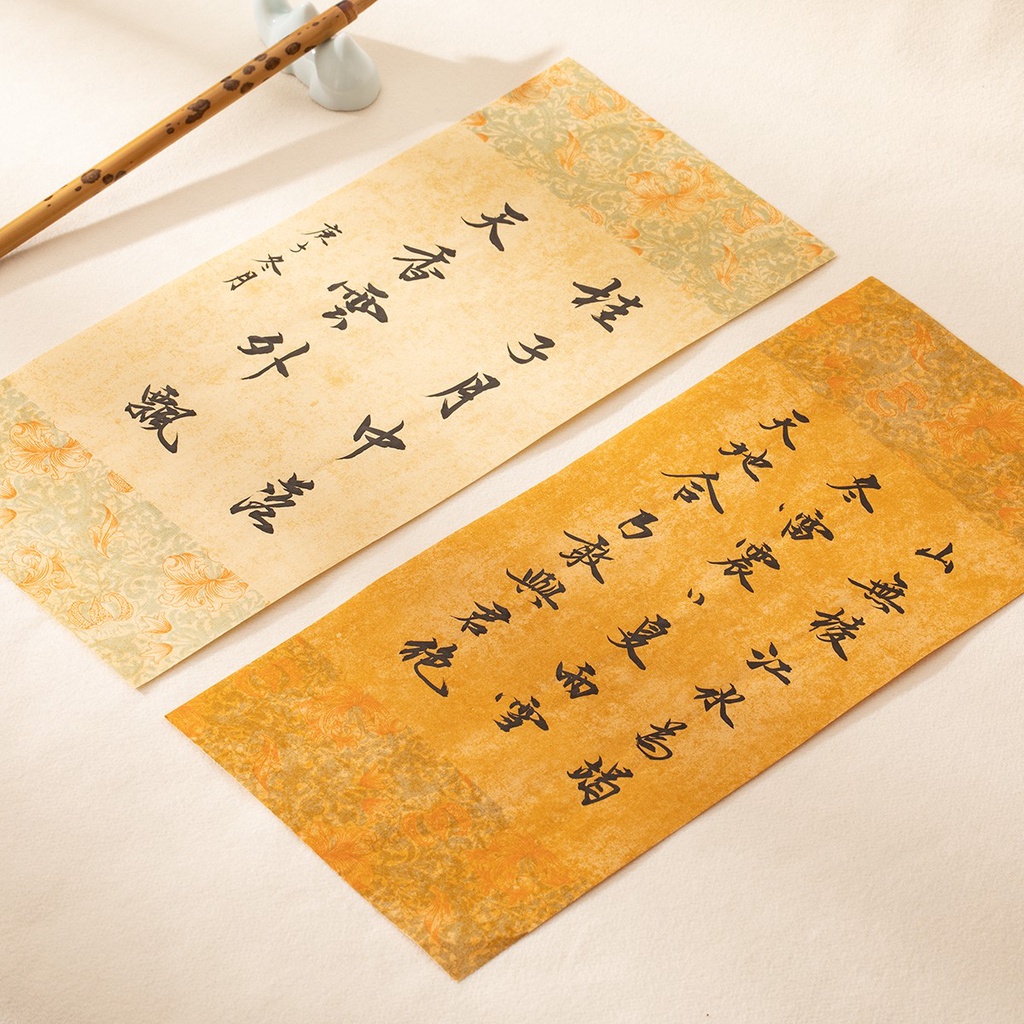 桂子月中落
天香雲外飄
庚子冬月
山無棱江水為竭
冬雷震〻夏雨雪
天地合乃敢與君絕